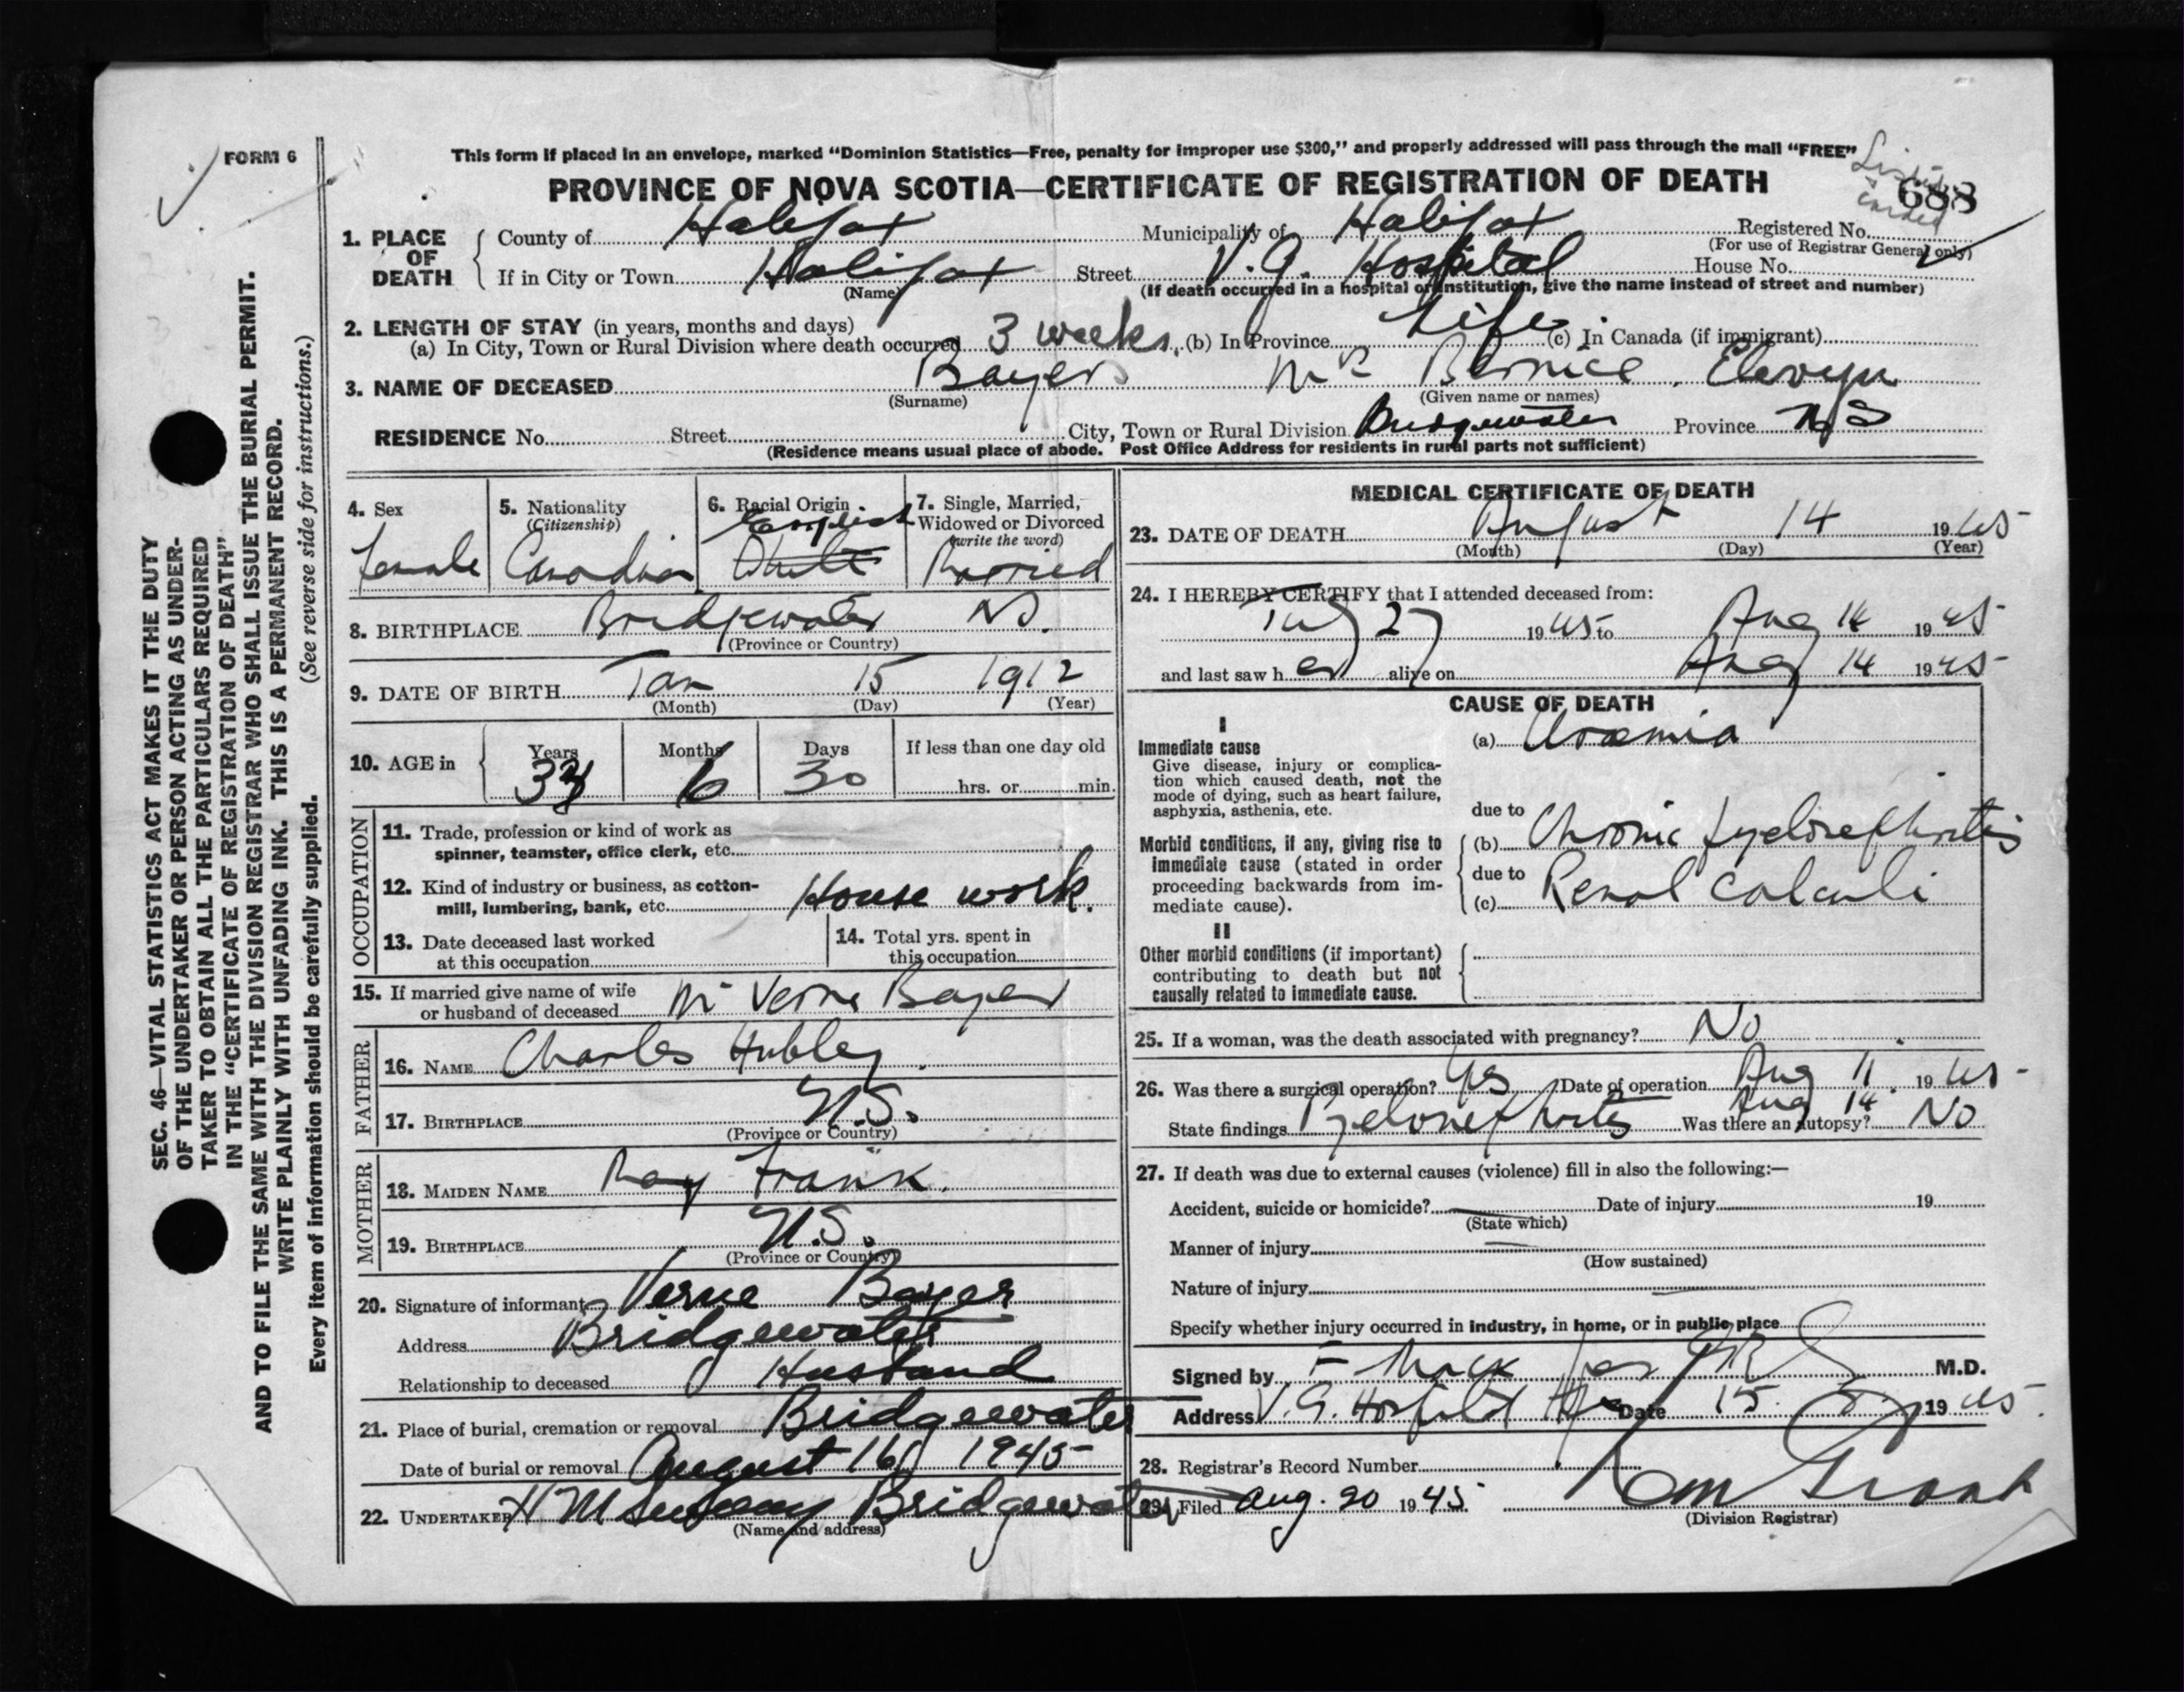 FORM 6
This form if placed in an envelope, marked “Dominion Statistics—Free, penalty for improper use $300,” and properly addressed will pass through the mail “FREE”
PROVINCE OF NOVA SCOTIA—CERTIFICATE OF REGISTRATION OF DEATH
688
1. PLACE OF DEATH
County of Halifax Municipality of Halifax Registered No.
(For use of Registrar General only)
If in City or Town Halifax Street V.G. Hospital House No.
(Name) (If death occurred in a hospital or institution, give the name instead of street and number)
2. LENGTH OF STAY (in years, months and days)
(a) In City, Town or Rural Division where death occurred 3 weeks. (b) In Province Life (c) In Canada (if immigrant)
3. NAME OF DECEASED Bayers Mrs Bernice
(Surname) (Given name or names)
RESIDENCE No. Street City, Town or Rural Division Bridgewater Province NS
(Residence means usual place of abode. Post Office Address for residents in rural parts not sufficient)
4. Sex
Female
5. Nationality
(Citizenship)
Canadian
6. Racial Origin
English
White
7. Single, Married,
Widowed or Divorced
(write the word)
Married
8. BIRTHPLACE Bridgewater NS.
(Province or Country)
9. DATE OF BIRTH Jan 15 1912
(Month) (Day) (Year)
10. AGE in
Years Months Days If less than one day old
33 6 30 hrs. or min.
OCCUPATION
11. Trade, profession or kind of work as
spinner, teamster, office clerk, etc.
12. Kind of industry or business, as cotton-
mill, lumbering, bank, etc. House work.
13. Date deceased last worked
at this occupation
14. Total yrs. spent in
this occupation
15. If married give name of wife
or husband of deceased Mr Verne Bayer
FATHER
16. NAME Charles Hubley
17. BIRTHPLACE N.S.
(Province or Country)
MOTHER
18. MAIDEN NAME May Frank.
19. BIRTHPLACE N.S.
(Province or Country)
20. Signature of informant Verne Bayer
Address Bridgewater
Relationship to deceased Husband
21. Place of burial, cremation or removal Bridgewater
Date of burial or removal August 16 1945
22. UNDERTAKER H M Bridgewater
(Name and address)
MEDICAL CERTIFICATE OF DEATH
23. DATE OF DEATH August 14 1945
(Month) (Day) (Year)
24. I HEREBY CERTIFY that I attended deceased from:
July 27 1945 to Aug 14 1945
and last saw her alive on Aug 14 1945
CAUSE OF DEATH
I
Immediate cause
Give disease, injury or complica-
tion which caused death, not the
mode of dying, such as heart failure,
asphyxia, asthenia, etc.
(a) Uraemia
due to
Morbid conditions, if any, giving rise to
immediate cause (stated in order
proceeding backwards from im-
mediate cause).
(b) Chronic pyelonephritis
due to
(c) Renal calculi
II
Other morbid conditions (if important)
contributing to death but not
causally related to immediate cause.
25. If a woman, was the death associated with pregnancy? No
26. Was there a surgical operation? Yes Date of operation Aug 11 1945
Aug 14
State findings Pyelonephritis Was there an autopsy? No
27. If death was due to external causes (violence) fill in also the following:—
Accident, suicide or homicide? Date of injury 19
(State which)
Manner of injury
(How sustained)
Nature of injury
Specify whether injury occurred in industry, in home, or in public place
Signed by F Mack M.D.
Address V.G. Hospital Hfx Date 15 8 1945.
28. Registrar's Record Number
29. Filed Aug. 20 1945
(Division Registrar)
SEC. 46—VITAL STATISTICS ACT MAKES IT THE DUTY
OF THE UNDERTAKER OR PERSON ACTING AS UNDER-
TAKER TO OBTAIN ALL THE PARTICULARS REQUIRED
IN THE “CERTIFICATE OF REGISTRATION OF DEATH”
AND TO FILE THE SAME WITH THE DIVISION REGISTRAR WHO SHALL ISSUE THE BURIAL PERMIT.
WRITE PLAINLY WITH UNFADING INK. THIS IS A PERMANENT RECORD.
Every item of information should be carefully supplied. (See reverse side for instructions.)